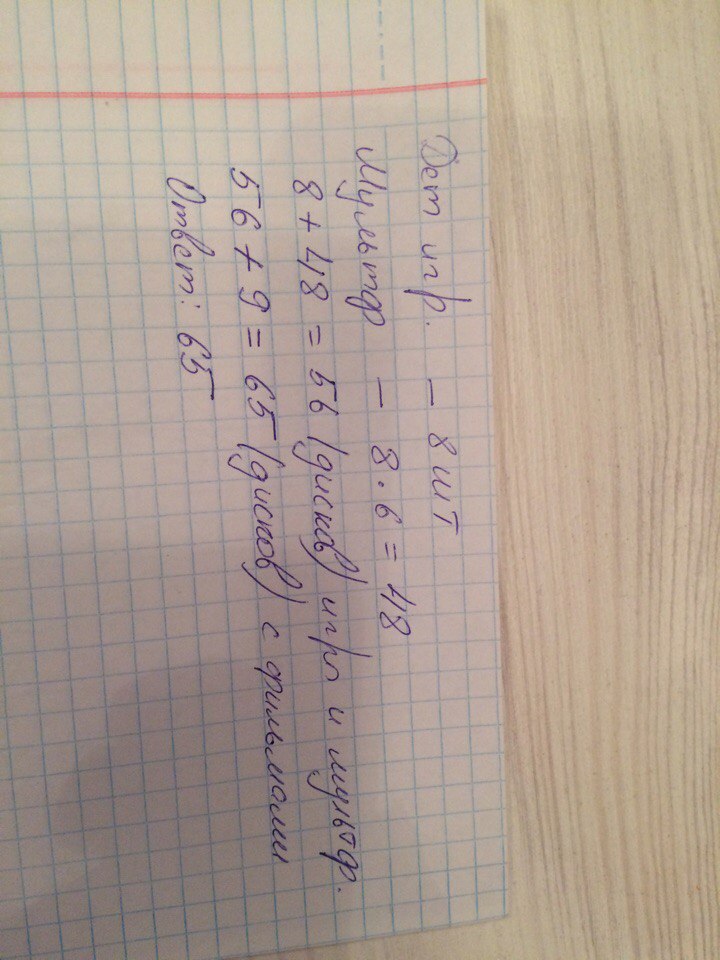 Дет игр. – 8 шт
Мультф – 8·6 = 48
8 + 48 = 56 (дисков) игры и мультф.
56 + 9 = 65 (дисков) с фильмами
Ответ: 65